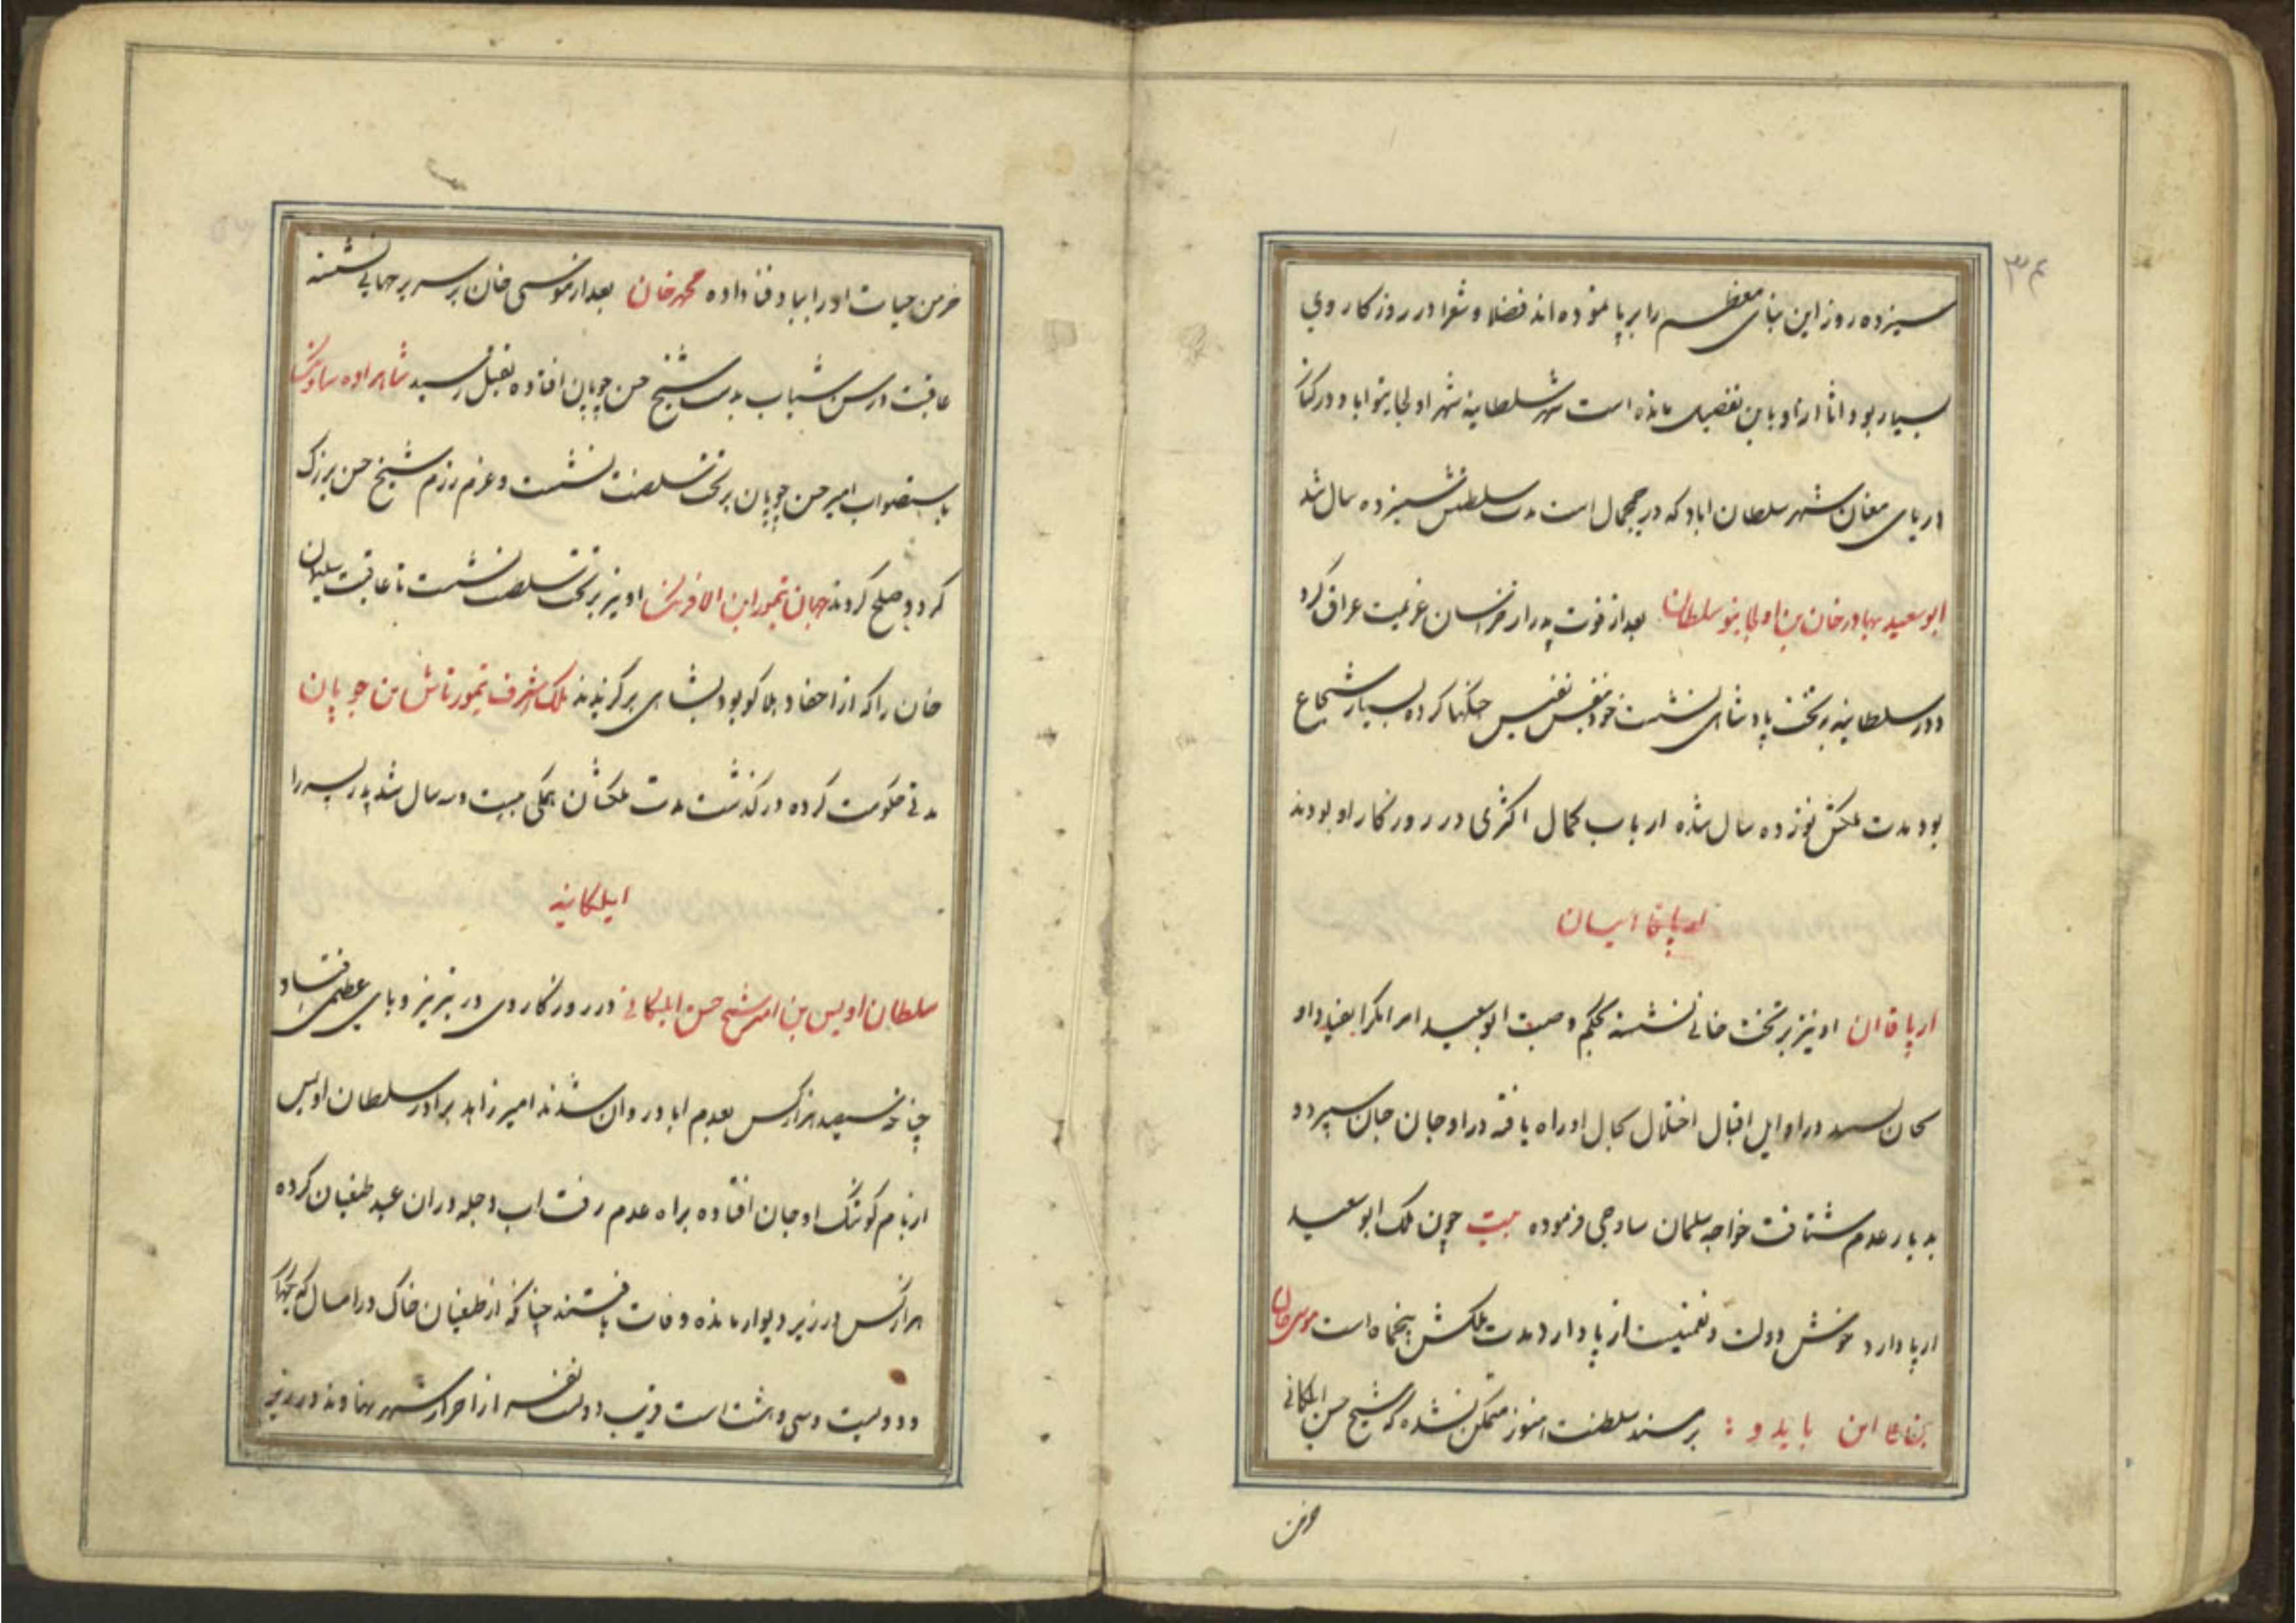 ۳۴
سیزده روز این بنای معظم را برپا نموده اند فضلا و شعرا در روزکار وی
بسیار بود اثار او باین تفصیل مانده است شهر سلطانیه شهر اولجایتو اباد در کنار
دریای مغان شهر سلطان اباد که در چمچمال است مدت سلطنتش سیزده سال شد
ابو سعید بهادر خان بن اولجایتو سلطان بعد از فوت پدر از خراسان عزیمت عراق کرد
و در سلطانیه بر تخت پادشاهی نشست خود بنفس نفیس جنکها کرده بسیار شجاع
بود مدت ملکش نوزده سال شده ارباب کمال اکثری در روزکار او بودند
ارپا قاان او نیز بر تخت خانی نشسته بحکم وصیت ابو سعید امرا
در اوایل اقبال اختلال بحال او راه یافته در اوجان جان سپرد و
بدیار عدم شتافت خواجه سلمان ساوجی فرموده بیت چون ملک ابو سعید
ارپا دارد خوش دولت و نعمتیست ارپا دارد مدت ملکش پنجماه است موسی خان
بن علی ابن بایدو : بر مسند سلطنت هنوز متمکن نشده که شیخ حسن ایلکانی
خرمن
خرمن حیات او را بباد فنا داده محمد خان بعد از موسی خان بر سریر جهانبانی نشسته
عاقبت در سن شباب بدست شیخ حسن چوپان افتاده بقتل رسید شاهزاده
باستصواب امیر حسن چوپان بر تخت سلطنت نشست و عزم رزم شیخ حسن بزرک
کرد و صلح کردند جهان تیمور ابن الافرنک او نیز بر تخت سلطنت نشست تا عاقبت سلیمان
خان را که از احفاد هلاکو بود بشاهی برکزیدند ملک اشرف تیمورتاش بن چوپان
مدتی حکومت کرده درکذشت مدت ملکشان همکی بیست و سه سال شد پدر پسر را
ایلکانیه
سلطان اویس بن امیر شیخ حسن ایلکانی در روزکار وی در تبریز وبای عظیمی افتاد
چنانچه سیصد هزار کس بعدم اباد روان شدند امیر زاهد برادر سلطان اویس
از بام کوشک اوجان افتاده براه عدم رفت اب دجله در ان عهد طغیان کرده
هزار کس در زیر دیوار مانده وفات یافتند چنانکه از طغیان خاک در امسال که
و دویست و سی و هشت است قریب دویست نفسه از احرار شهر نهاوند در